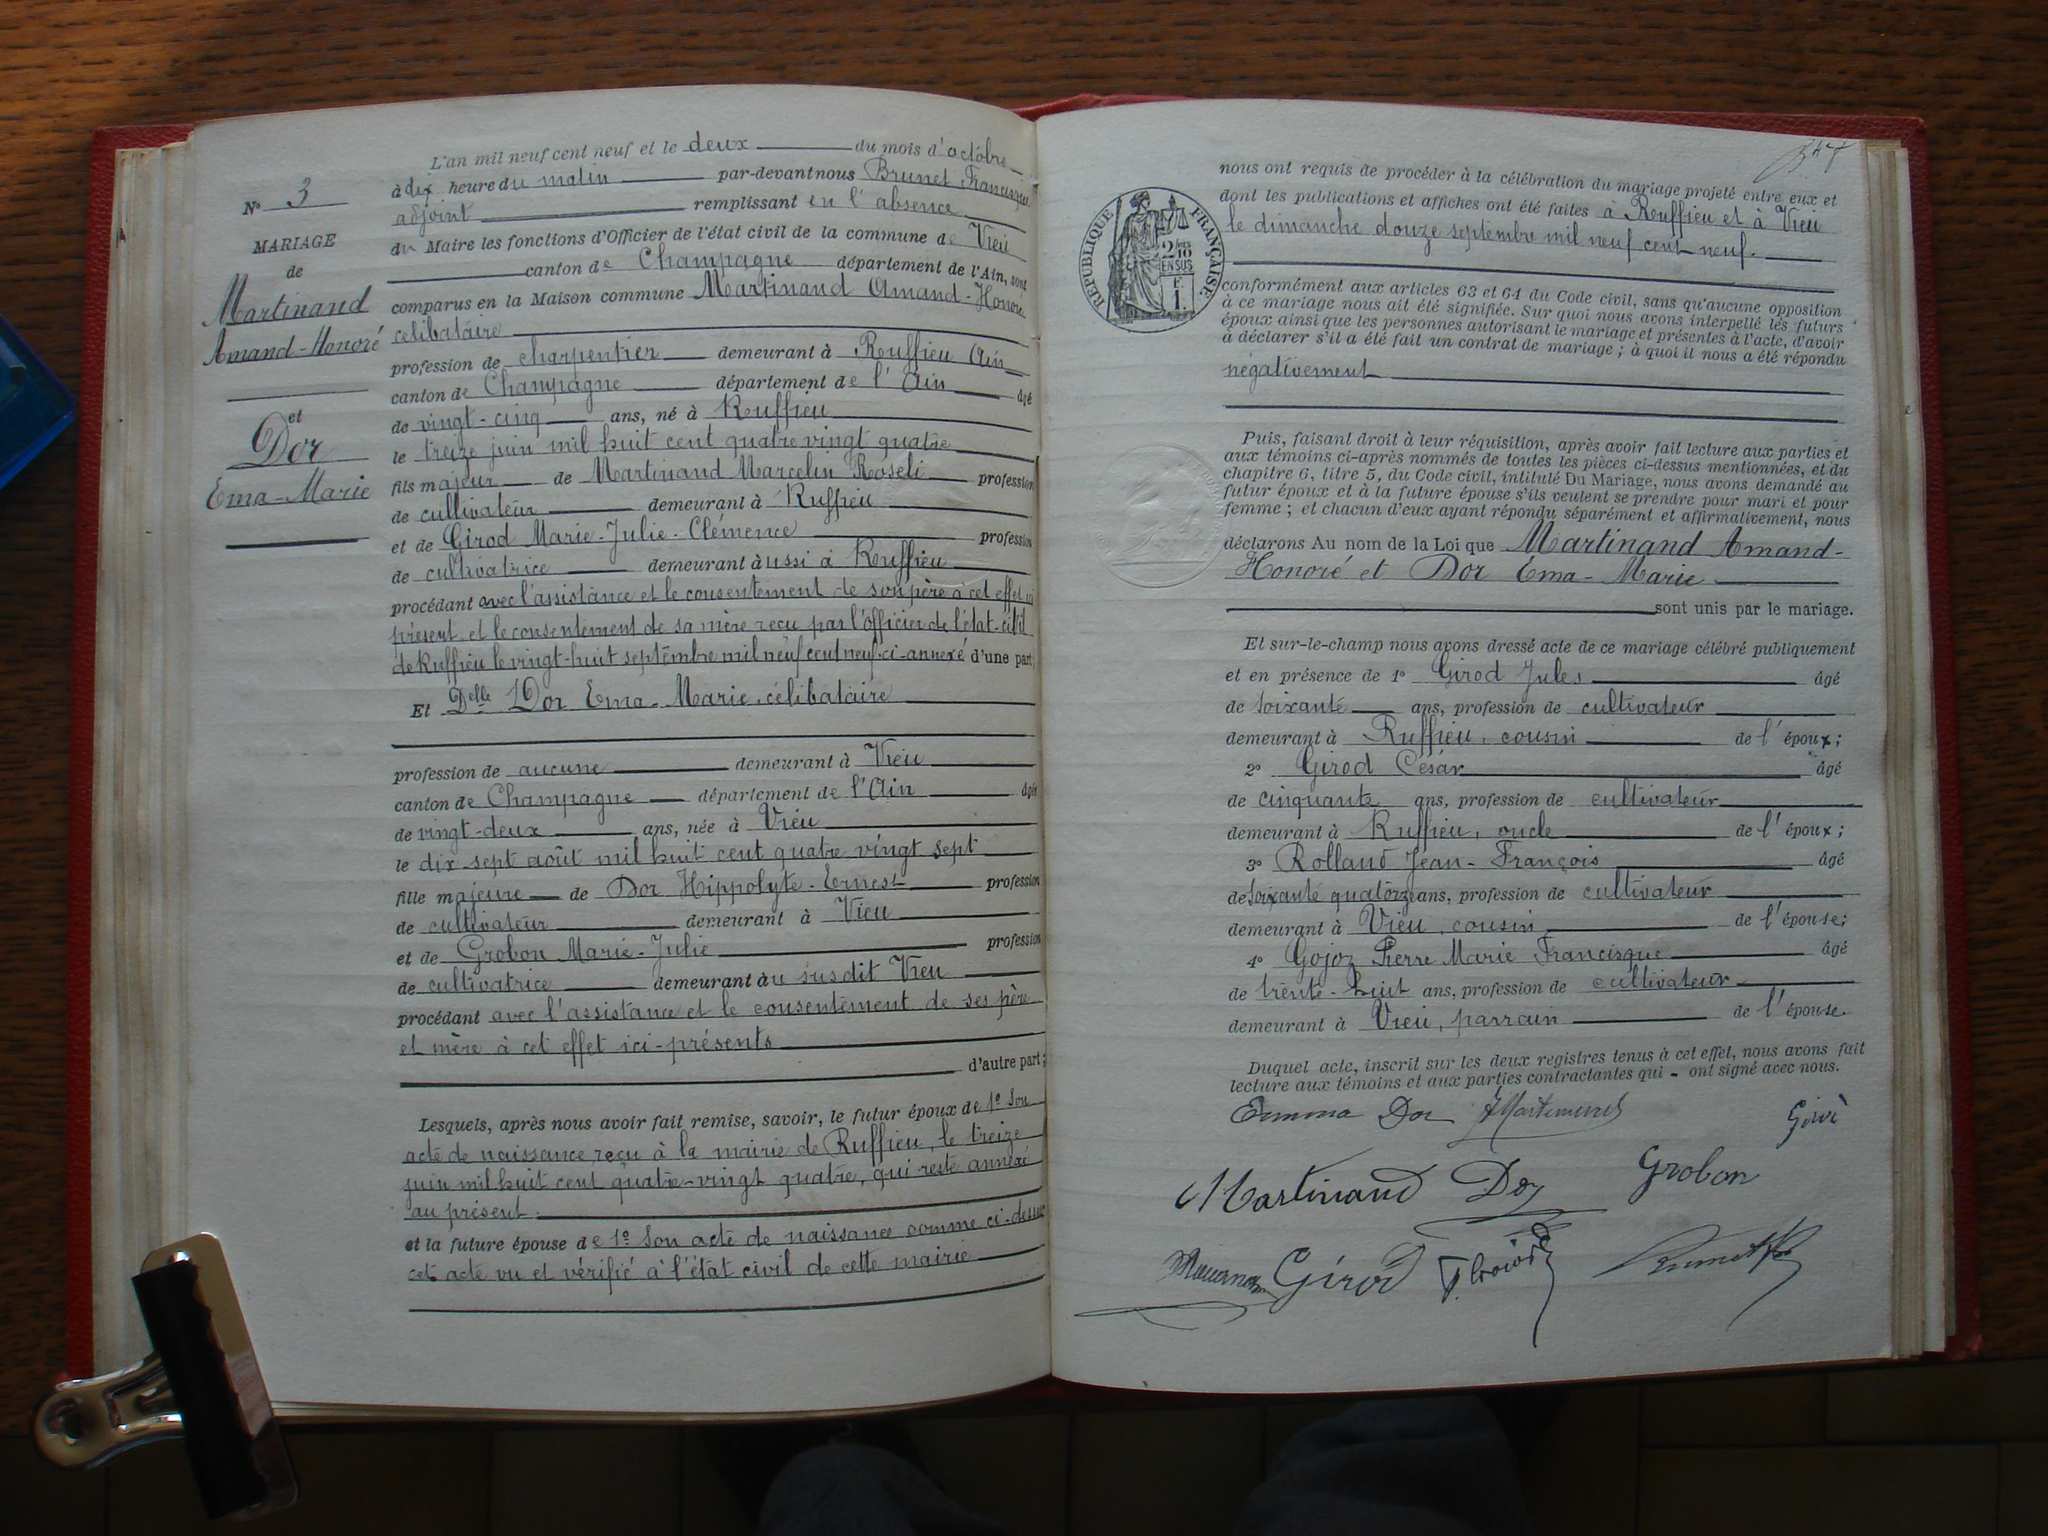 L'an mil neuf cent neuf et le deux du mois d'octobre
à dix heure du matin par-devant nous Brunet Francisque
adjoint remplissant en l'absence
du Maire les fonctions d'Officier de l'état civil de la commune de Vieu
canton de Champagne département de l'Ain, sont
comparus en la Maison commune Martinand Amand-Honoré
célibataire
profession de charpentier demeurant à Ruffieu Ain
canton de Champagne département de l'Ain âgé
de vingt-cinq ans, né à Ruffieu
le treize juin mil huit cent quatre vingt quatre
fils majeur de Martinand Marcelin Roseli profession
de cultivateur demeurant à Ruffieu
et de Girod Marie-Julie-Clémence profession
de cultivatrice demeurant aussi à Ruffieu
procédant avec l'assistance et le consentement de son père à cet effet ici
présent et le consentement de sa mère reçu par l'officier de l'état-civil
de Ruffieu le vingt-huit septembre mil neuf cent neuf-ci-annexé d'une part;
Et Delle Dor Ema-Marie, célibataire
profession de aucune demeurant à Vieu
canton de Champagne département de l'Ain âgée
de vingt-deux ans, née à Vieu
le dix-sept août mil huit cent quatre vingt sept
fille majeure de Dor Hippolyte-Ernest profession
de cultivateur demeurant à Vieu
et de Grobon Marie-Julie profession
de cultivatrice demeurant au susdit Vieu
procédant avec l'assistance et le consentement de ses père
et mère à cet effet ici-présents
d'autre part;
Lesquels, après nous avoir fait remise, savoir, le futur époux de 1º son
acte de naissance reçu à la mairie de Ruffieu, le treize
juin mil huit cent quatre-vingt quatre, qui reste annexé
au présent.
et la future épouse de 1º Son acte de naissance comme ci-dessus
cet acte vu et vérifié à l'état civil de cette mairie
Nº 3
MARIAGE
de
Martinand
Amand-Honoré
et
Dor
Ema-Marie
nous ont requis de procéder à la célébration du mariage projeté entre eux et
dont les publications et affiches ont été faites à Ruffieu et à Vieu
le dimanche douze septembre mil neuf cent neuf.
RÉPUBLIQUE FRANÇAISE
2/10
EN SUS
F.
1.
conformément aux articles 63 et 64 du Code civil, sans qu'aucune opposition
à ce mariage nous ait été signifiée. Sur quoi nous avons interpellé les futurs
époux ainsi que les personnes autorisant le mariage et présentes à l'acte, d'avoir
à déclarer s'il a été fait un contrat de mariage; à quoi il nous a été répondu
négativement
Puis, faisant droit à leur réquisition, après avoir fait lecture aux parties et
aux témoins ci-après nommés de toutes les pièces ci-dessus mentionnées, et du
chapitre 6, titre 5, du Code civil, intitulé Du Mariage, nous avons demandé au
futur époux et à la future épouse s'ils veulent se prendre pour mari et pour
femme; et chacun d'eux ayant répondu séparément et affirmativement, nous
déclarons Au nom de la Loi que Martinand Amand-
Honoré et Dor Ema-Marie
sont unis par le mariage.
Et sur-le-champ nous avons dressé acte de ce mariage célébré publiquement
et en présence de 1º Girod Jules âgé
de soixante ans, profession de cultivateur
demeurant à Ruffieu, cousin de l'époux;
2º Girod César âgé
de cinquante ans, profession de cultivateur
demeurant à Ruffieu, oncle de l'époux;
3º Rolland Jean-François âgé
de soixante quatorze ans, profession de cultivateur
demeurant à Vieu, cousin de l'épouse;
4º Gojoz Pierre Marie Francisque âgé
de trente-huit ans, profession de cultivateur
demeurant à Vieu, parrain de l'épouse.
Duquel acte, inscrit sur les deux registres tenus à cet effet, nous avons fait
lecture aux témoins et aux parties contractantes qui - ont signé avec nous.
Emma Dor AMartinand
Martinand Dor Grobon
Girod